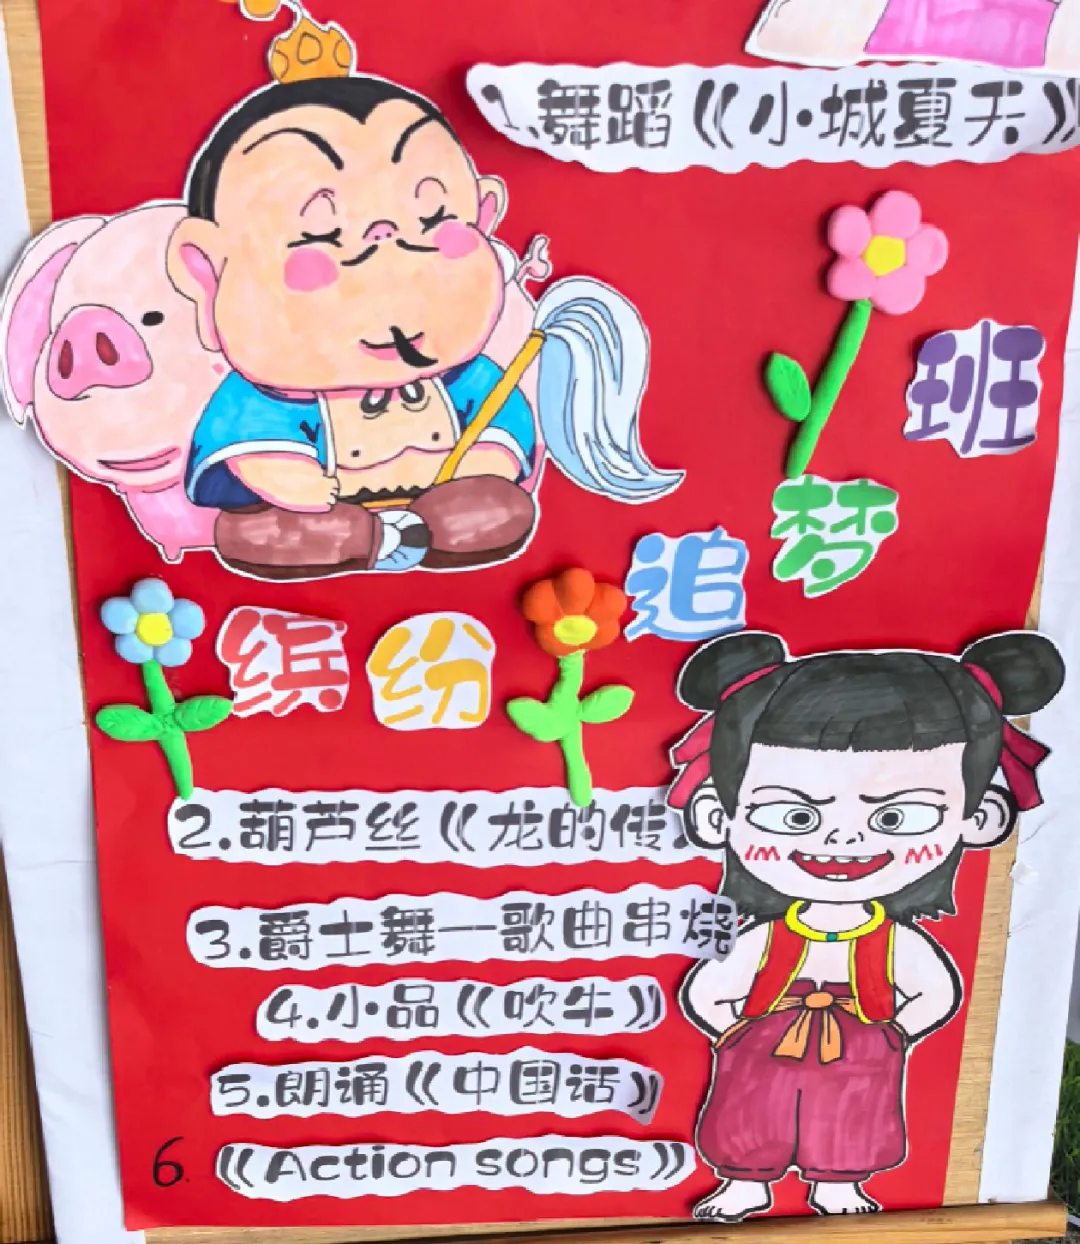 1.舞蹈《小城夏天》
缤纷追梦班
2.葫芦丝《龙的传
3.爵士舞—歌曲串烧
4.小品《吹牛》
5.朗诵《中国话》
6.《Action songs》